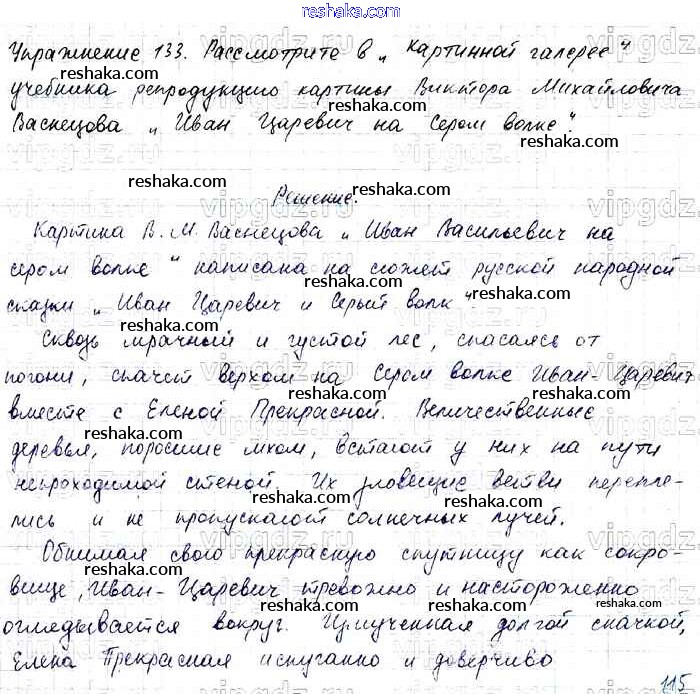 reshaka.com
Упражнение 133. Рассмотрите в „ Картинной галерее"
reshaka.com reshaka.com
учебника репродукцию картины Виктора Михайловича
Васнецова „ Иван Царевич на Сером волке".
reshaka.com reshaka.com
Решение.
Картина В. М. Васнецова „ Иван Васильевич на
reshaka.com
сером волке " написана на сюжет русской народной
reshaka.com
сказки „ Иван Царевич и Серый волк "
reshaka.com
Сквозь мрачный и густой лес, спасаясь от
reshaka.com
погони, скачет верхом на Сером волке Иван-Царевич
вместе с Еленой Прекрасной. Величественные
reshaka.com reshaka.com
деревья, поросшие мхом, встают у них на пути
непроходимой стеной. Их зловещие ветви перепле-
reshaka.com
лись и не пропускают солнечных лучей.
reshaka.com
Обнимая свою прекрасную спутницу как сокро-
reshaka.com
вище, Иван-Царевич тревожно и настороженно
reshaka.com
оглядывается вокруг. Измученная долгой скачкой,
reshaka.com
Елена Прекрасная испуганно и доверчиво
reshaka.com
115
vipgdz.ru